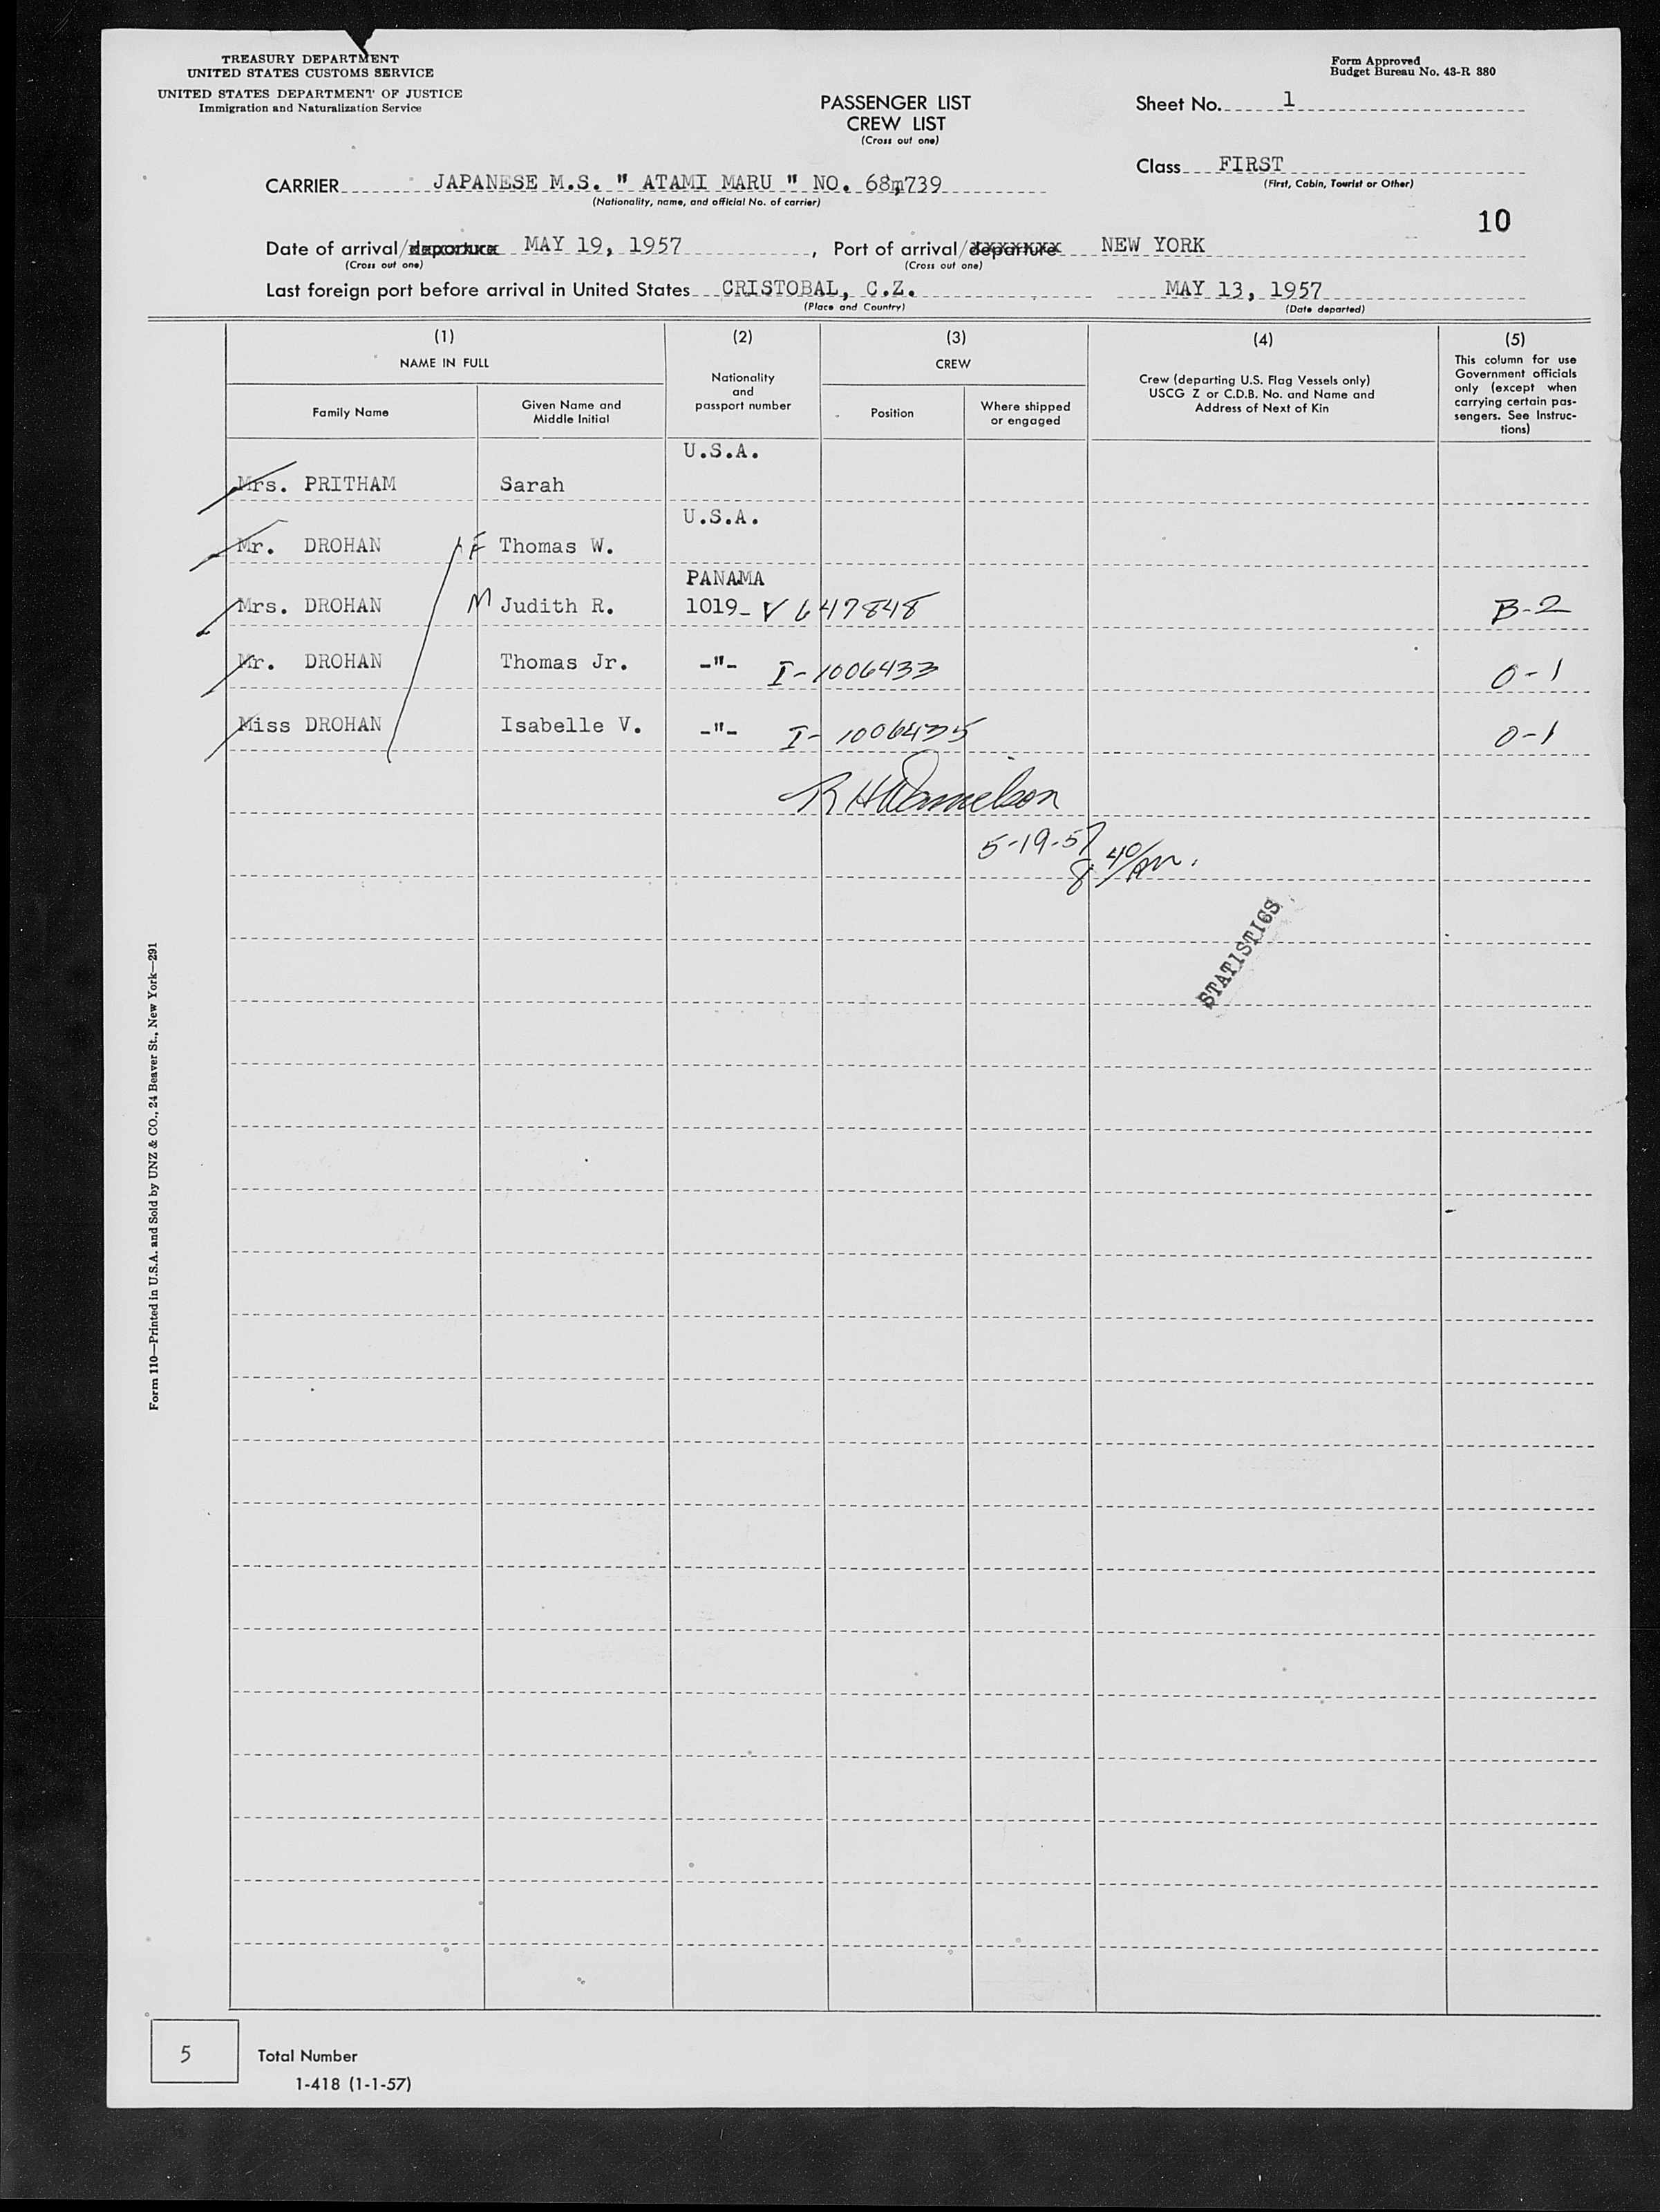 TREASURY DEPARTMENT
UNITED STATES CUSTOMS SERVICE
UNITED STATES DEPARTMENT OF JUSTICE
Immigration and Naturalization Service
Form Approved
Budget Bureau No. 43-R 380
PASSENGER LIST
CREW LIST
(Cross out one)
Sheet No. 1
Class FIRST
(First, Cabin, Tourist or Other)
CARRIER JAPANESE M.S. " ATAMI MARU " NO. 68,739
(Nationality, name, and official No. of carrier)
10
Date of arrival/departure MAY 19, 1957, Port of arrival/departure NEW YORK
(Cross out one) (Cross out one)
Last foreign port before arrival in United States CRISTOBAL, C.Z. MAY 13, 1957
(Place and Country) (Date departed)
(1) (2) (3) (4) (5)
NAME IN FULL
Family Name
Given Name and
Middle Initial
Nationality
and
passport number
CREW
Position
Where shipped
or engaged
Crew (departing U.S. Flag Vessels only)
USCG Z or C.D.B. No. and Name and
Address of Next of Kin
This column for use
Government officials
only (except when
carrying certain pas-
sengers. See Instruc-
tions)
U.S.A.
Mrs. PRITHAM Sarah
U.S.A.
Mr. DROHAN F Thomas W.
PANAMA
Mrs. DROHAN M Judith R. 1019- V 647848 B-2
Mr. DROHAN Thomas Jr. -"- I-1006433 O-1
Miss DROHAN Isabelle V. -"- I-1006435 O-1
R H Danielson
5-19-57
8 40/am.
STATISTICS
Form 110—Printed in U.S.A. and Sold by UNZ & CO., 24 Beaver St., New York—291
5 Total Number
1-418 (1-1-57)